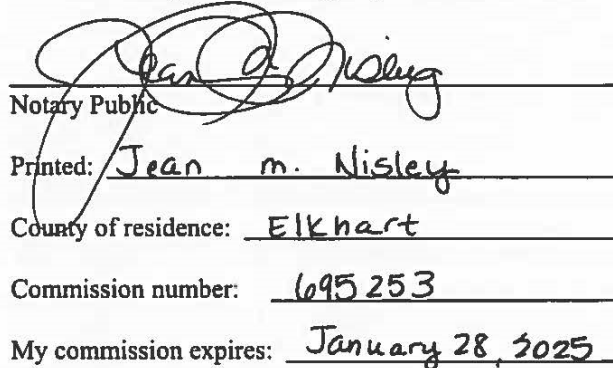 Jean M Nisley
Notary Public
Printed: Jean m. Nisley
County of residence: Elkhart
Commission number: 695253
My commission expires: January 28, 2025